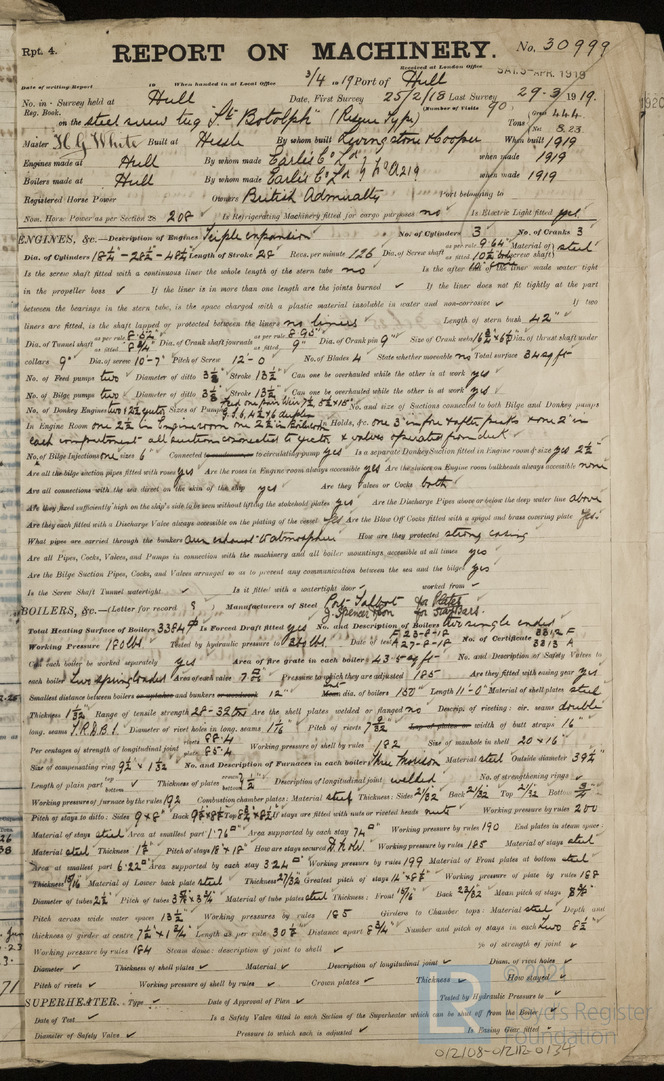 Rpt. 4.
REPORT ON MACHINERY.
No. 30999
Received at London Office
SAT. 5-APR. 1919
Date of writing Report 19 When handed in at Local Office 3/4 1919 Port of Hull
No. in Survey held at Hull Date, First Survey 25/2/18 Last Survey 29-3-1919.
Reg. Book. (Number of Visits 90
on the steel screw tug "St Botolph" (Rescue Type) Tons Gross 444. Net 8.23
Master H G White Built at Hessle By whom built Livingstone & Cooper When built 1919
Engines made at Hull By whom made Earle's Co Ld when made 1919
Boilers made at Hull By whom made Earle's Co Ld when made 1919
Registered Horse Power Owners British Admiralty Port belonging to
Nom. Horse Power as per Section 28 208 Is Refrigerating Machinery fitted for cargo purposes no Is Electric Light fitted yes
ENGINES, &c.—Description of Engines Triple expansion No. of Cylinders 3 No. of Cranks 3
Dia. of Cylinders Length of Stroke 28 Revs. per minute 126 Dia. of Screw shaft as per rule 9.64" Material of screw shaft steel
Is the screw shaft fitted with a continuous liner the whole length of the stern tube no Is the after end of the liner made water tight
in the propeller boss ✓ If the liner is in more than one length are the joints burned ✓ If the liner does not fit tightly at the part
between the bearings in the stern tube, is the space charged with a plastic material insoluble in water and non-corrosive ✓ If two
liners are fitted, is the shaft lapped or protected between the liners no liners Length of stern bush 42"
Dia. of Tunnel shaft as per rule as fitted Dia. of Crank shaft journals as per rule as fitted 9" Dia. of Crank pin 9" Size of Crank webs Dia. of thrust shaft under
collars 9" Dia. of screw 10'-7" Pitch of Screw 12'-0 No. of Blades 4 State whether moveable no Total surface 34 sq ft
No. of Feed pumps two Diameter of ditto Stroke 13½" Can one be overhauled while the other is at work yes
No. of Bilge pumps two Diameter of ditto Stroke 13½" Can one be overhauled while the other is at work yes
No. of Donkey Engines Sizes of Pumps No. and size of Suctions connected to both Bilge and Donkey pumps
In Engine Room one 2½ in Engine room one 2½ in Boiler room In Holds, &c. one 3" in fore & after peaks & one 2" in
each compartment all suctions connected to ejector & valves operated from deck
No. of Bilge Injections one sizes 6" Connected to circulating pump yes Is a separate Donkey Suction fitted in Engine room & size yes 2½"
Are all the bilge suction pipes fitted with roses yes Are the roses in Engine room always accessible yes Are the sluices on Engine room bulkheads always accessible none
Are all connections with the sea direct on the skin of the ship yes Are they Valves or Cocks both
Are they fixed sufficiently high on the ship's side to be seen without lifting the stokehold plates yes Are the Discharge Pipes above or below the deep water line above
Are they each fitted with a Discharge Valve always accessible on the plating of the vessel yes Are the Blow Off Cocks fitted with a spigot and brass covering plate yes.
What pipes are carried through the bunkers aux exhaust to atmosphere How are they protected strong casing
Are all Pipes, Cocks, Valves, and Pumps in connection with the machinery and all boiler mountings accessible at all times yes
Are the Bilge Suction Pipes, Cocks, and Valves arranged so as to prevent any communication between the sea and the bilges yes
Is the Screw Shaft Tunnel watertight ✓ Is it fitted with a watertight door ✓ worked from ✓
BOILERS, &c.—(Letter for record S Manufacturers of Steel Port Talbot for Plates J. Spencer & Son for Stay Bars.
Total Heating Surface of Boilers 3384 Is Forced Draft fitted yes No. and Description of Boilers two single ended
Working Pressure 180 lbs Tested by hydraulic pressure to 360 lbs Date of test F 23-8-18 A 27-8-18 No. of Certificate 3312 F 3313 A
Can each boiler be worked separately yes Area of fire grate in each boiler 43.5 sq ft No. and Description of Safety Valves to
each boiler two spring loaded Area of each valve Pressure to which they are adjusted 185 Are they fitted with easing gear yes
Smallest distance between boilers and bunkers 12" dia. of boilers 150" Length 11'-0" Material of shell plates steel
Thickness Range of tensile strength 28-32 tons Are the shell plates welded or flanged no Descrip. of riveting: cir. seams double
long. seams T.R.D.B.S. Diameter of rivet holes in long. seams Pitch of rivets width of butt straps 16"
Per centages of strength of longitudinal joint rivets 88.4 plate 85.4 Working pressure of shell by rules 182 Size of manhole in shell 20 x 16"
Size of compensating ring No. and Description of Furnaces in each boiler Three Morrison Material steel Outside diameter 39½"
Length of plain part top bottom Thickness of plates crown bottom Description of longitudinal joint welded No. of strengthening rings ✓
Working pressure of furnace by the rules 192 Combustion chamber plates: Material steel Thickness: Sides 21/32 Back 21/32 Top 21/32 Bottom
Pitch of stays to ditto: Sides 9 x 8" Back Top If stays are fitted with nuts or riveted heads nuts Working pressure by rules 200
Material of stays steel Area at smallest part 1.76 Area supported by each stay 74 Working pressure by rules 190 End plates in steam space:
Material steel Thickness Pitch of stays 18 x 18" How are stays secured Working pressure by rules 185 Material of stays steel
Area at smallest part 6.22 Area supported by each stay 324 Working pressure by rules 199 Material of Front plates at bottom steel
Thickness 15/16 Material of Lower back plate steel Thickness 27/32 Greatest pitch of stays Working pressure of plate by rules 188
Diameter of tubes 2½" Pitch of tubes Material of tube plates steel Thickness: Front 15/16" Back 22/32" Mean pitch of stays
Pitch across wide water spaces 13½" Working pressures by rules 185 Girders to Chamber tops: Material steel Depth and
thickness of girder at centre Length as per rule Distance apart Number and pitch of stays in each two
Working pressure by rules 184 Steam dome: description of joint to shell ✓ % of strength of joint ✓
Diameter ✓ Thickness of shell plates ✓ Material ✓ Description of longitudinal joint ✓ Diam. of rivet holes ✓
Pitch of rivets ✓ Working pressure of shell by rules ✓ Crown plates ✓ Thickness ✓ How stayed ✓
SUPERHEATER. Type ✓ Date of Approval of Plan ✓ Tested by Hydraulic Pressure to ✓
Date of Test ✓ Is a Safety Valve fitted to each Section of the Superheater which can be shut off from the Boiler
Diameter of Safety Valve ✓ Pressure to which each is adjusted ✓ Is Easing Gear fitted ✓
© 2021
Lloyd's Register
Foundation
012108-012112-0134